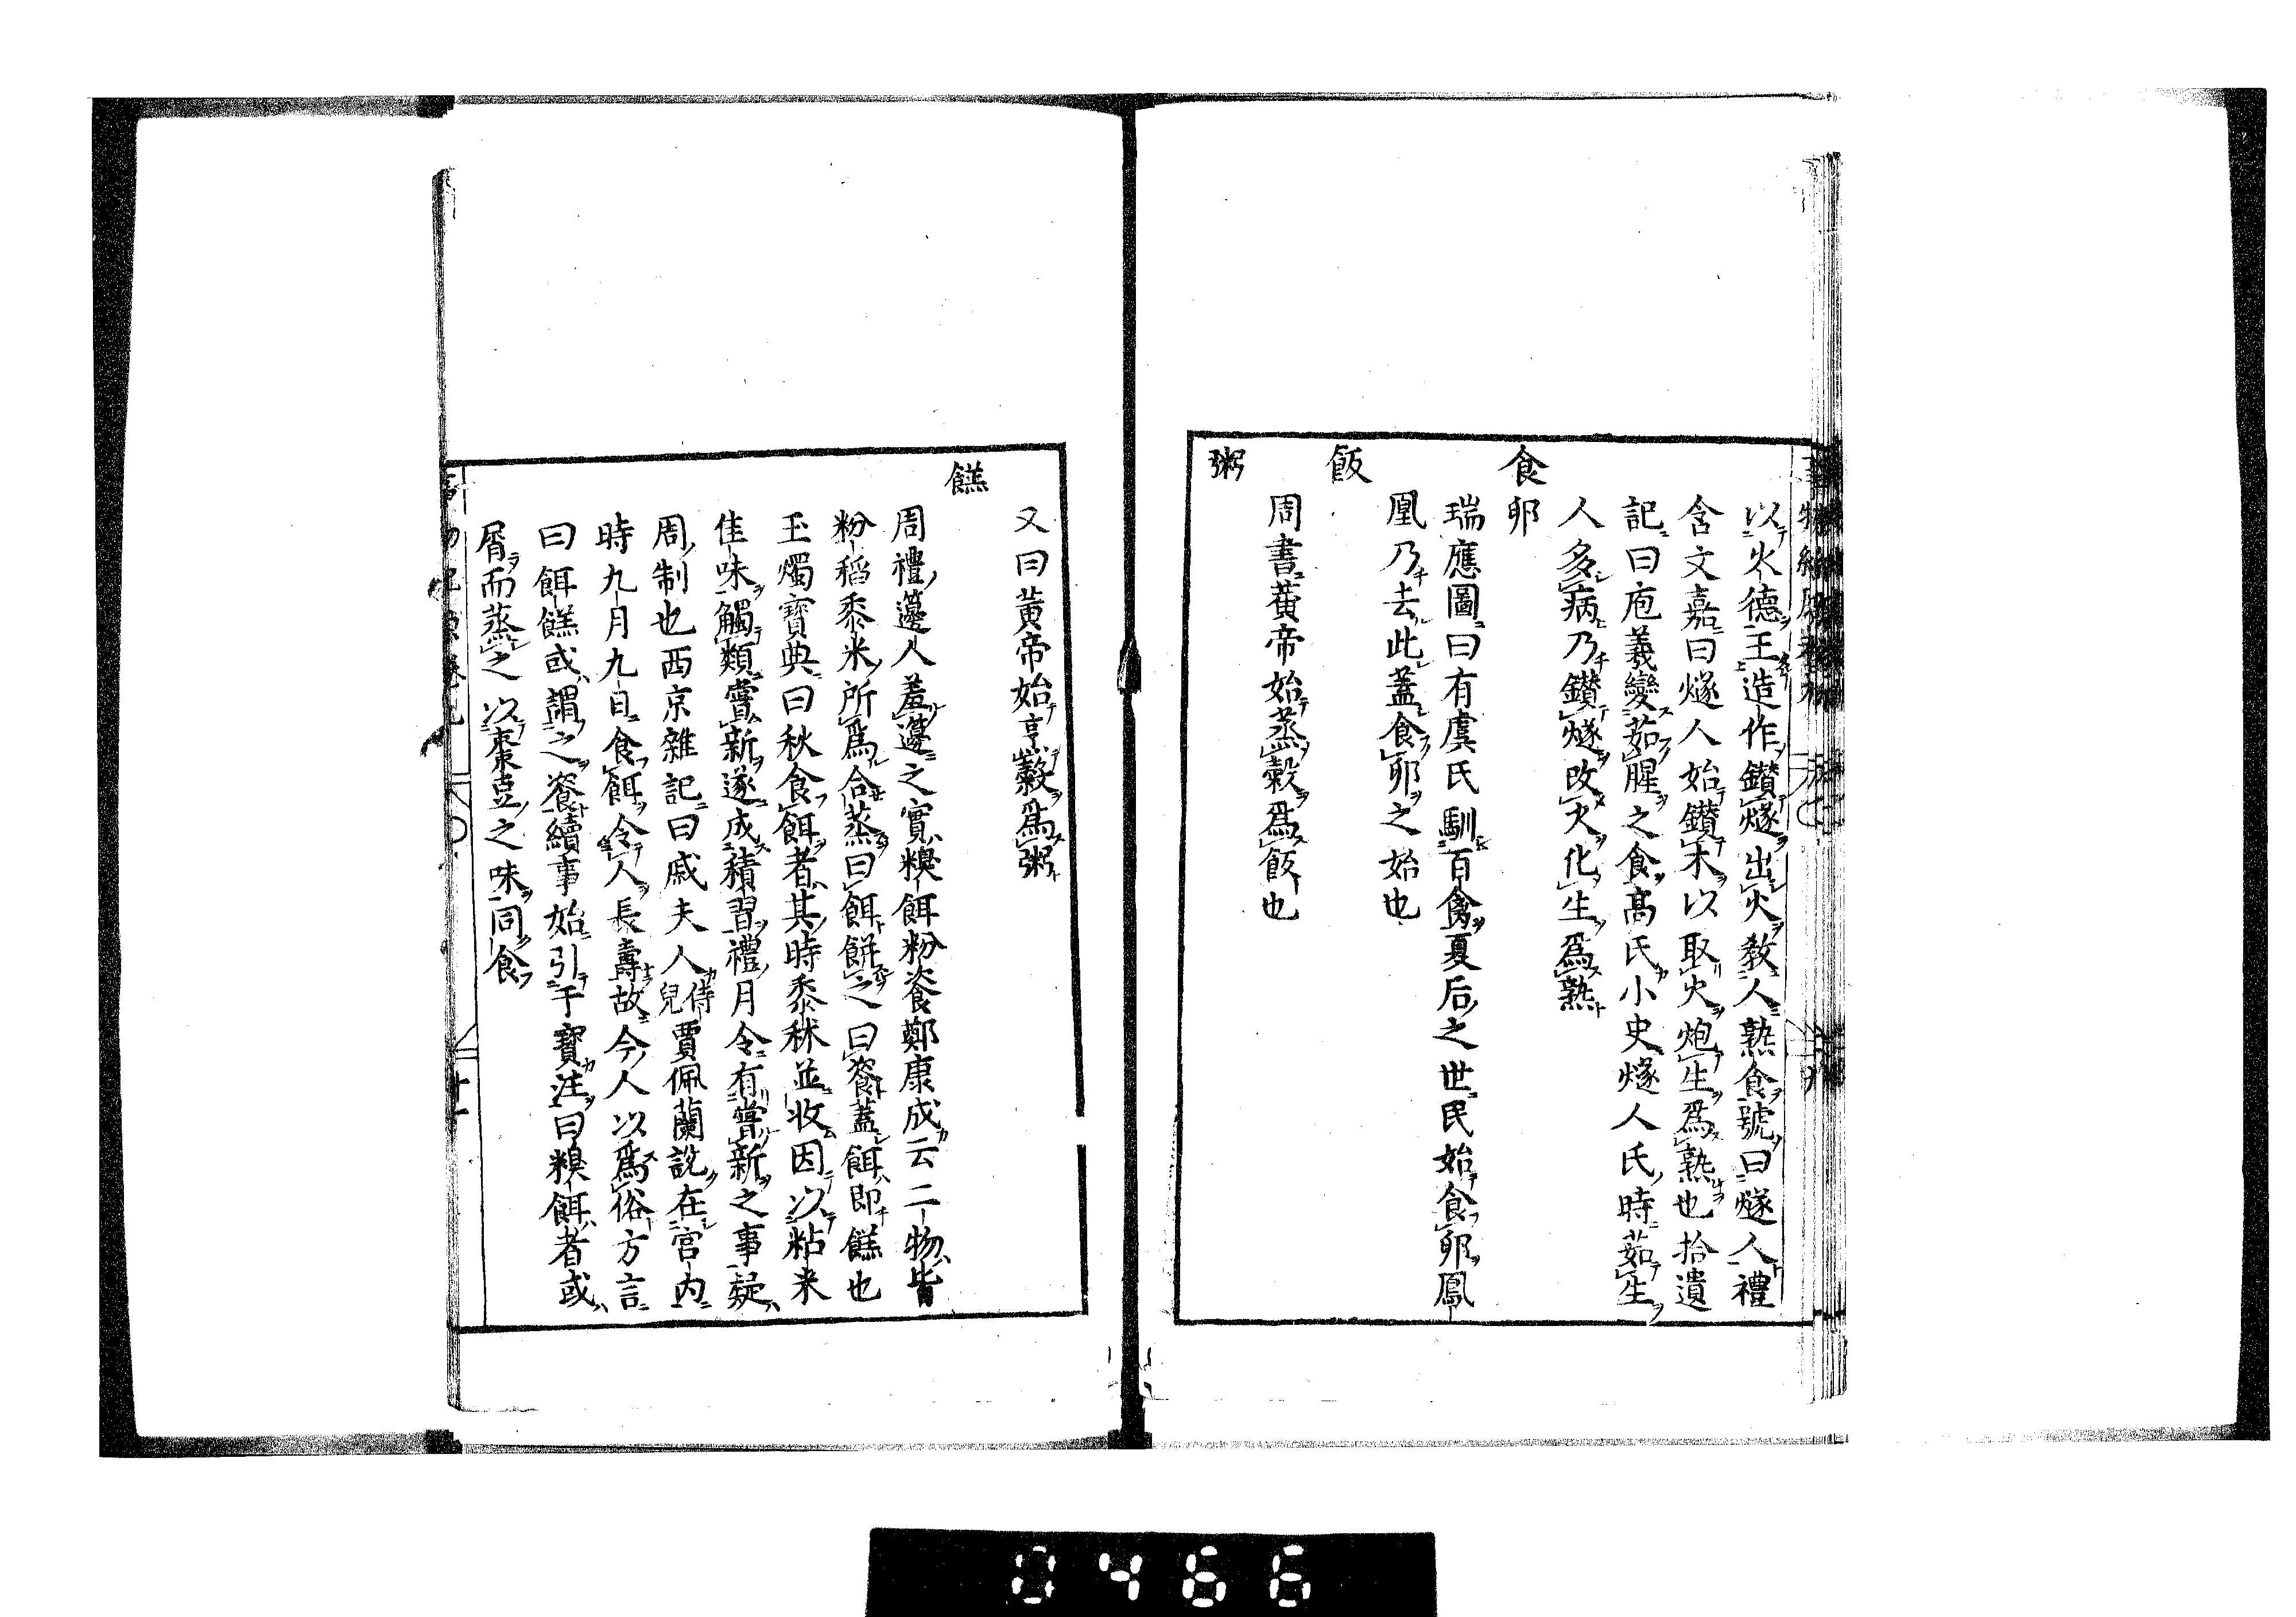 以火德王造作鑚燧出火教人熟食號曰燧人禮
含文嘉曰燧人始鑚木以取火炮生爲熟也拾遺
記曰庖羲變茹腥之食高氏小史燧人氏時茹生
人多病乃鑚燧改火化生爲熟
食卵
瑞應圖曰有虞氏馴百禽夏后之世民始食卵鳳
凰乃去此蓋食卵之始也
飯
周書黃帝始蒸穀爲飯也
粥
又曰黃帝始烹穀爲粥
餻
周禮籩人羞籩之實糗餌粉餈鄭康成云二物皆
粉稻黍米所爲合蒸曰餌餅之曰餈蓋餌即餻也
玉燭寶典曰秋食餌者其時黍秫並收因以粘米
佳味觸類嘗新遂成積習禮月令有嘗新之事疑
周制也西京雜記曰戚夫人侍兒賈佩蘭說在宮內
時九月九日食餌令人長壽故今人以爲俗方言
曰餌餻或謂之餈續事始引干寶注曰糗餌者或
屑而蒸之以棗豆之味同食
0466